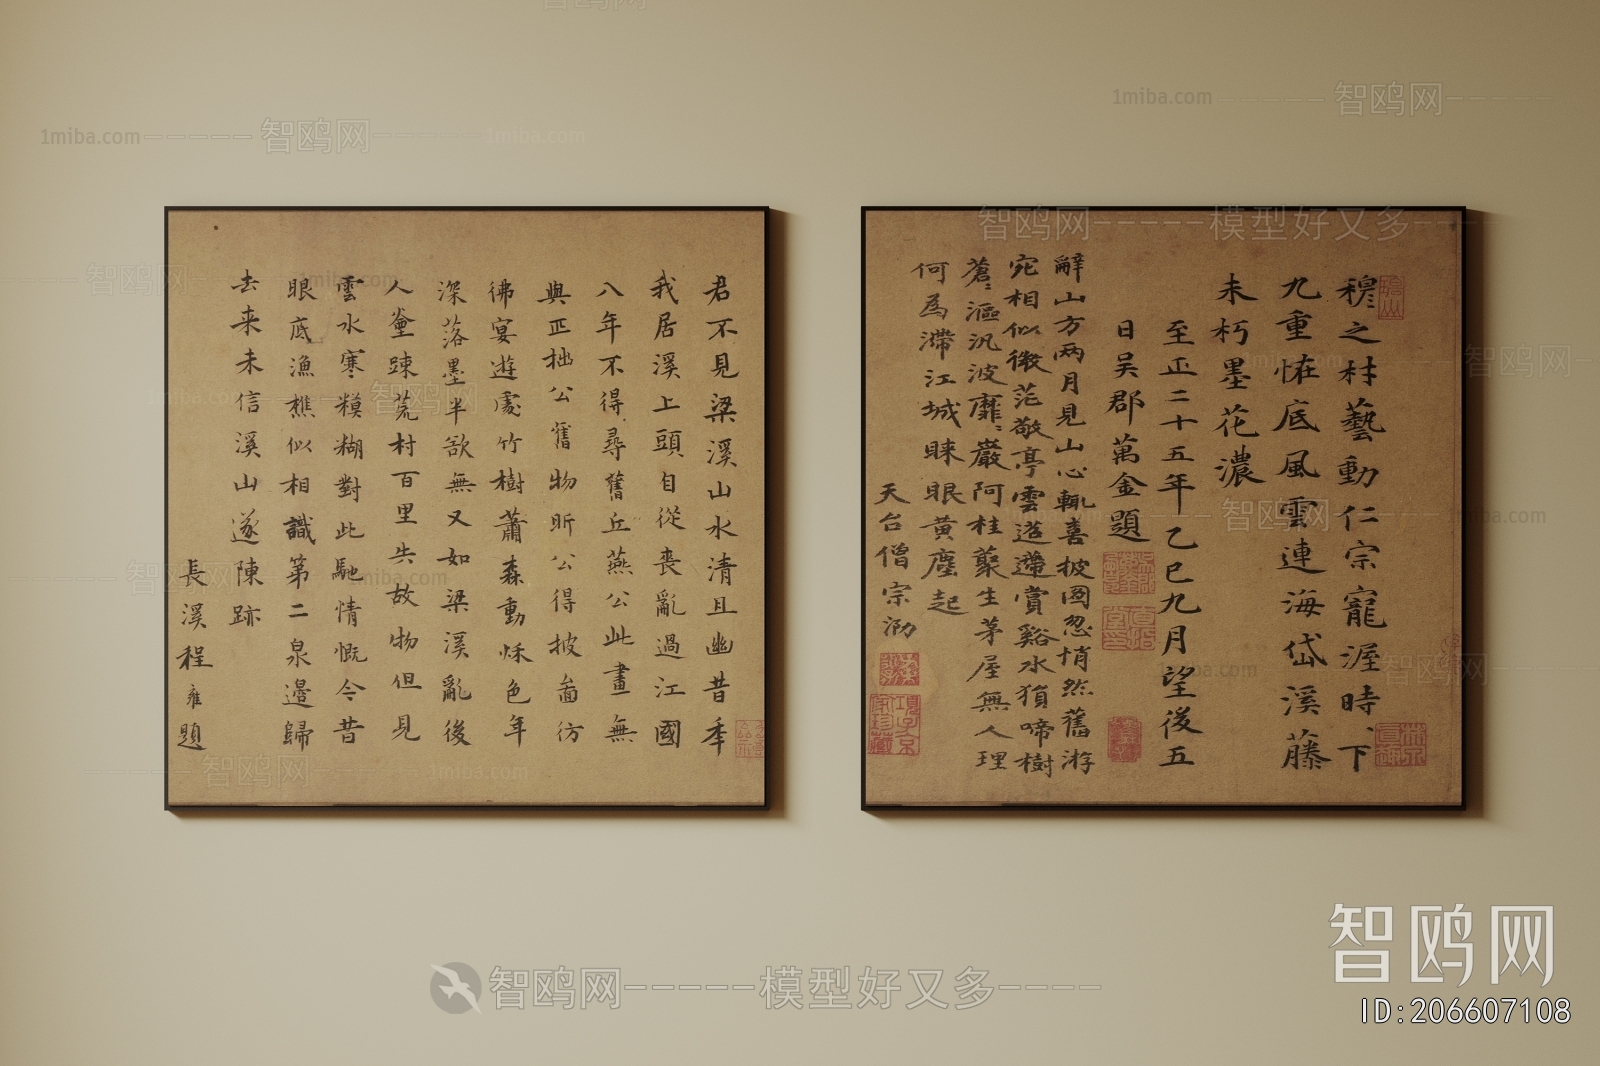 君不見梁溪山水清且幽昔年
我居溪上頭自從喪亂過江國
八年不得尋舊丘燕公此畫無
與匹拙公舊物昕公得披啚彷
彿宴遊處竹樹蕭森動秌色年
深落墨半欲無又如梁溪亂後
人疎荒村百里失故物但見
雲水寒糢糊對此馳情慨今昔
眼底漁樵似相識第二泉邊歸
去来未信溪山遂陳跡
長溪程雍題
穆之材藝動仁宗寵渥時下
九重恠底風雲連海岱溪藤
未朽墨花濃
至正二十五年乙巳九月望後五
日吳郡萬金題
辭山方両月見山心輒喜披圖忽悄然舊游
宛相似微茫敬亭雲遥邐賞谿水猿啼樹
蒼漚汎波靡巖阿桂藂生茅屋無人理
何為滯江城眯眼黄塵起
天台僧宗泐
1miba.com 智鸥网 1miba.com
1miba.com 智鸥网
智鸥网 模型好又多
智鸥网 模型好又多
智鸥网
ID:206607108